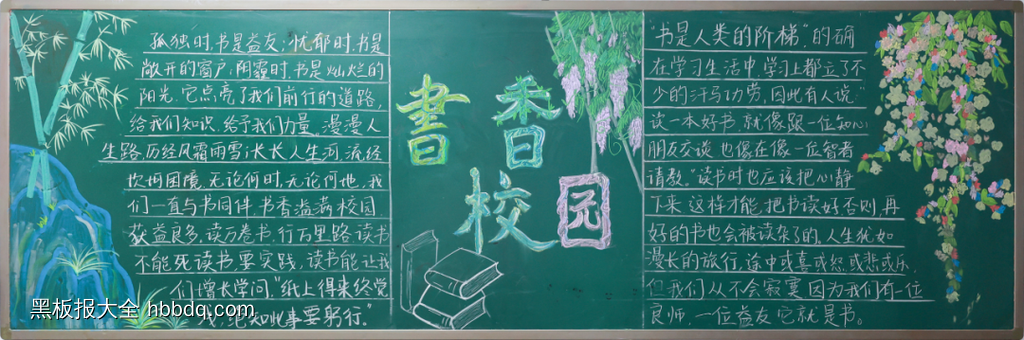 孤独时,书是益友;忧郁时,书是
敞开的窗户;阴霾时,书是灿烂的
阳光.它点亮了我们前行的道路,
给我们知识.给予我们力量.漫漫人
生路,历经风霜雨雪;长长人生河,流经
坎坷困境.无论何时,无论何地,我
们一直与书同伴.书香溢满校园
获益良多.读万卷书.行万里路.读书
不能死读书,要实践,读书能让我
们增长学问."纸上得来终觉
知此事要躬行."
書香
校园
"书是人类的阶梯".的确
在学习生活中,学习上都立了不
少的汗马功劳,因此有人说:"
读一本好书 就像跟一位知心
朋友交谈 也像在像一位智者
请教."读书时也应该把心静
下来 这样才能 把书读好,否则,再
好的书也会被读杂了的,人生犹如
漫长的旅行,途中或喜或怒,或悲或乐,
但我们从不会寂寞 因为我们有一位
良师,一位益友 它就是书。
黑板报大全 hbbdq.com